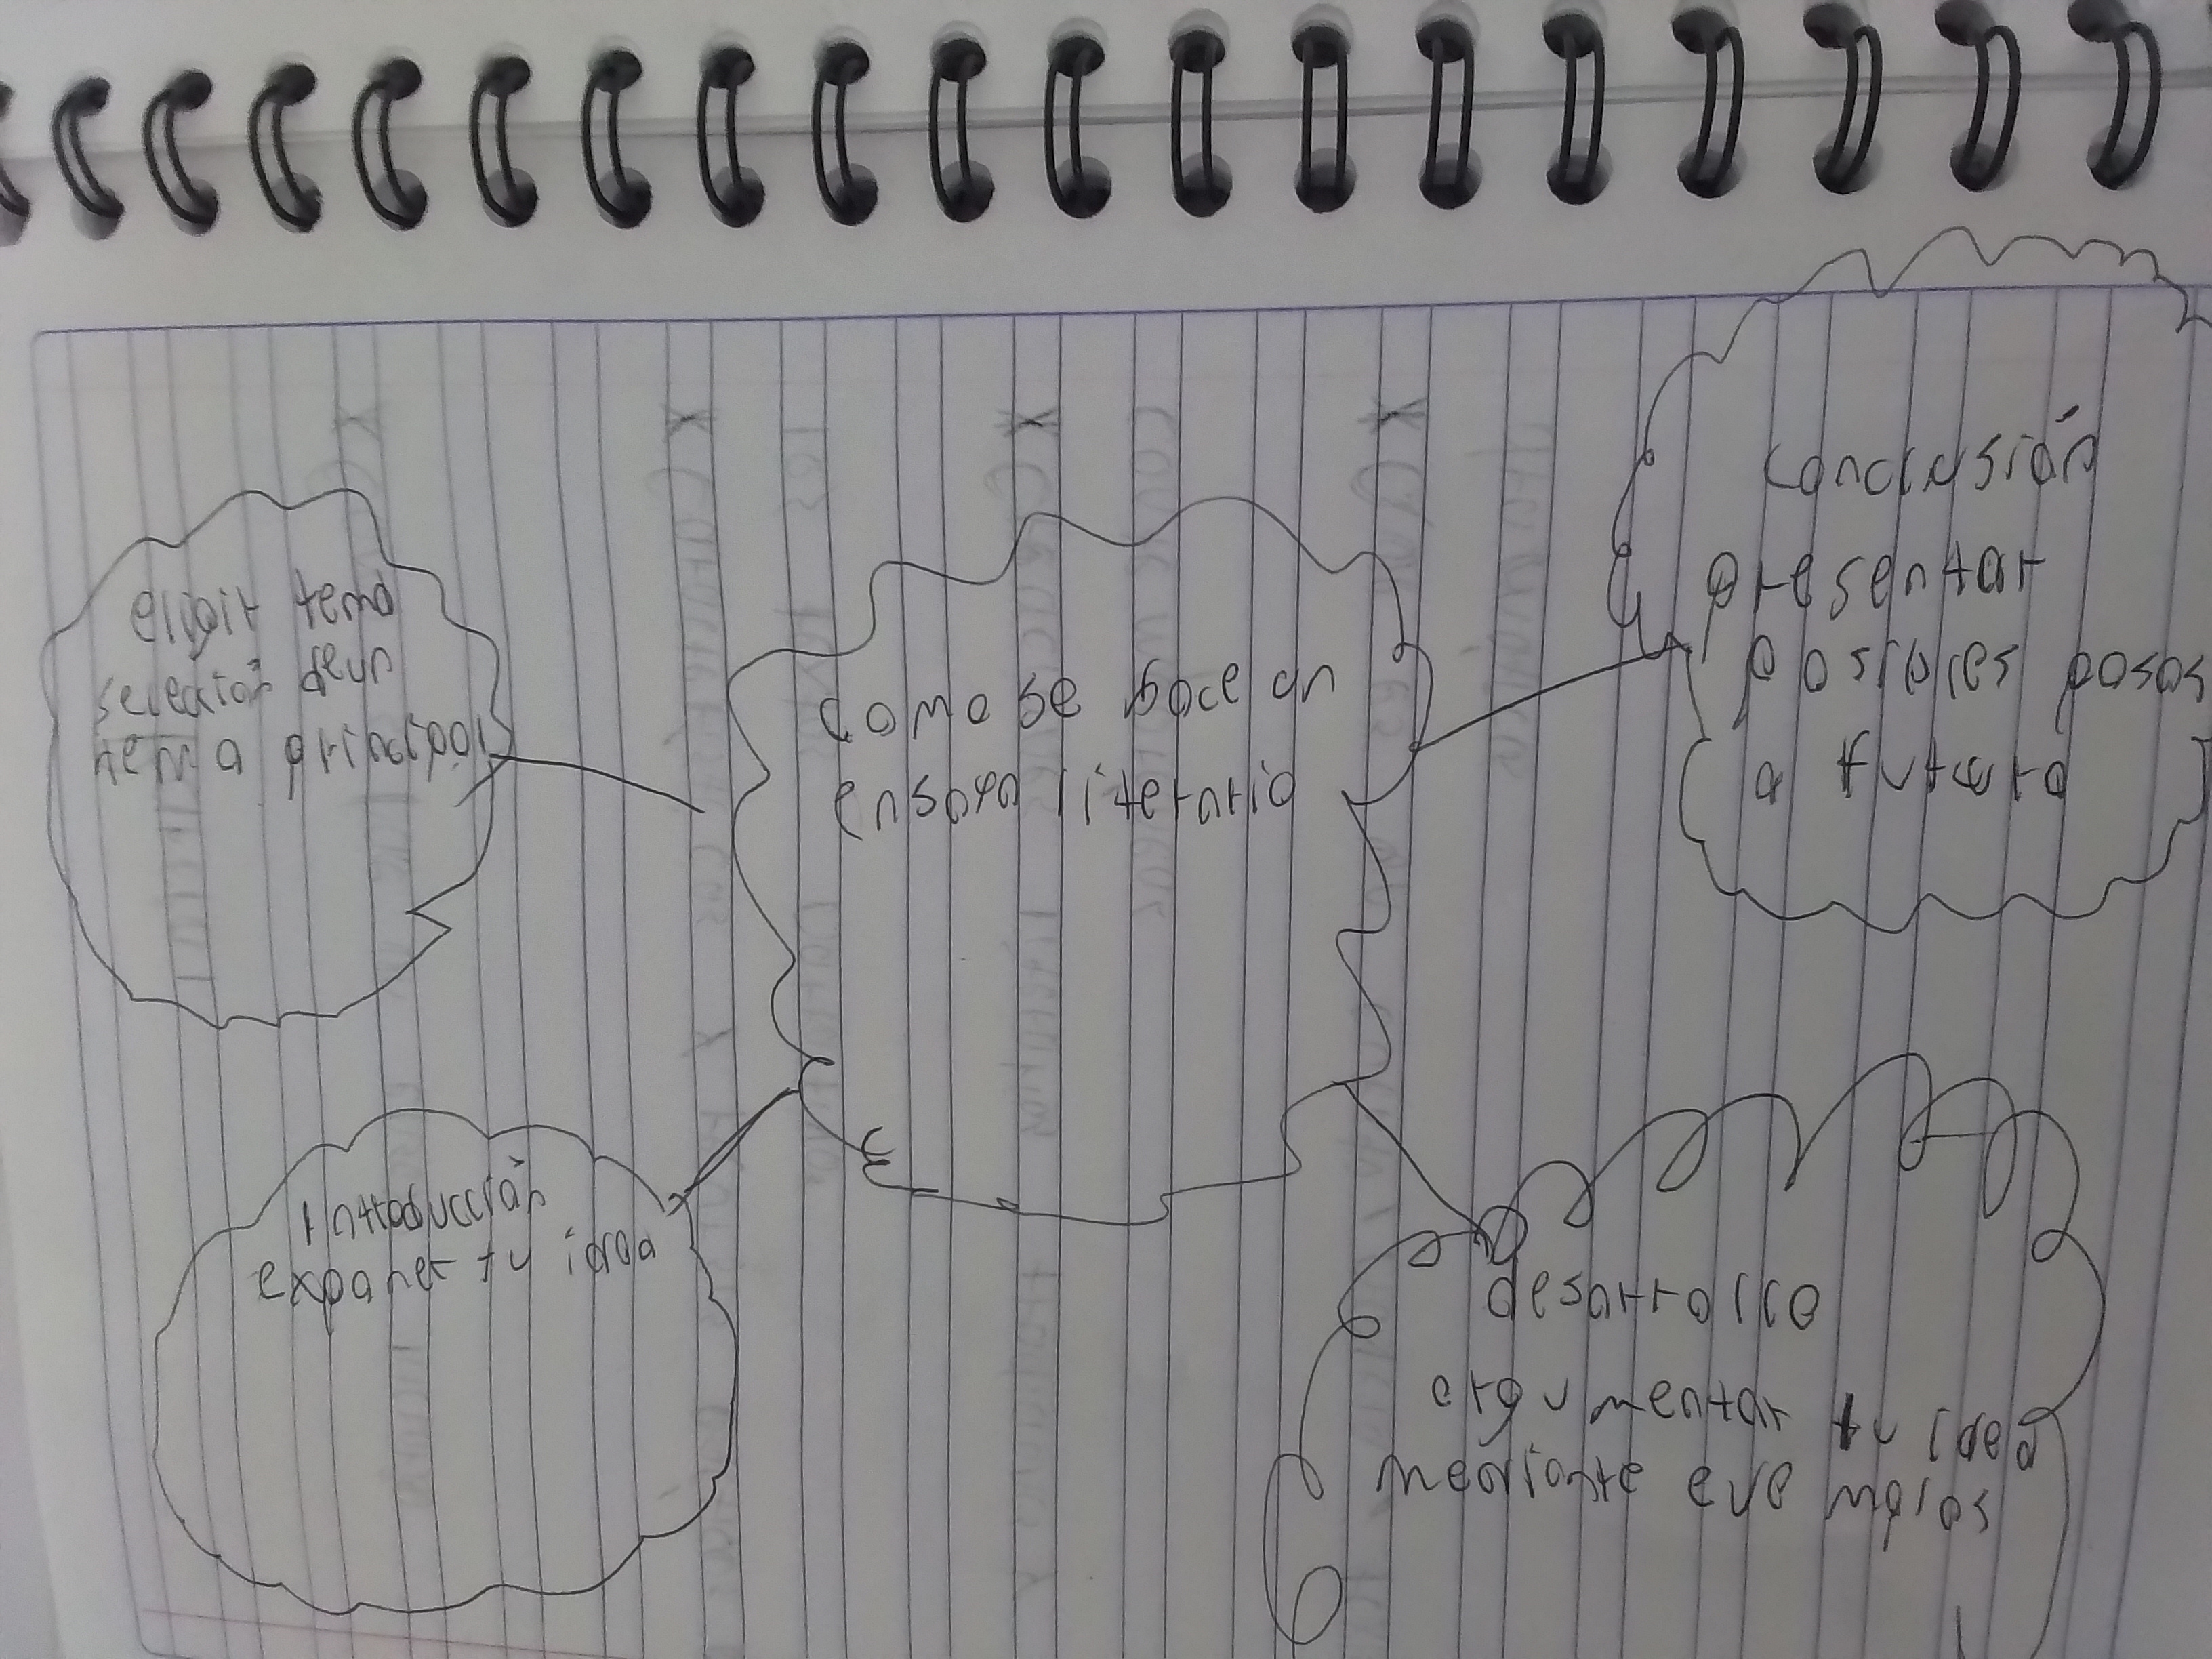 eligir tema
selección de un
tema principal
como se hace un
ensayo literario
conclusión
presentar
posibles pasos
a futuro
Introducción
exponer tu idea
desarrollo
argumentar tu idea
mediante eve mplos